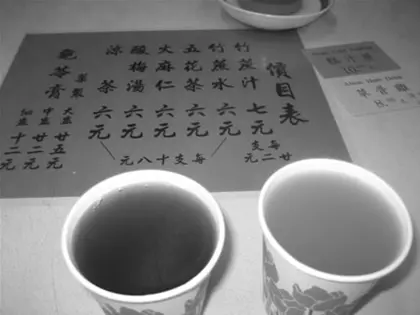 價目表
竹蔗汁 七元
竹蔗水 六元
五花茶 六元
火麻仁 六元
酸梅湯 六元
涼茶 六元
每支
廿二元
每支十八元
龜苓膏
大盅 廿五元
中盅 廿二元
細盅 十二元